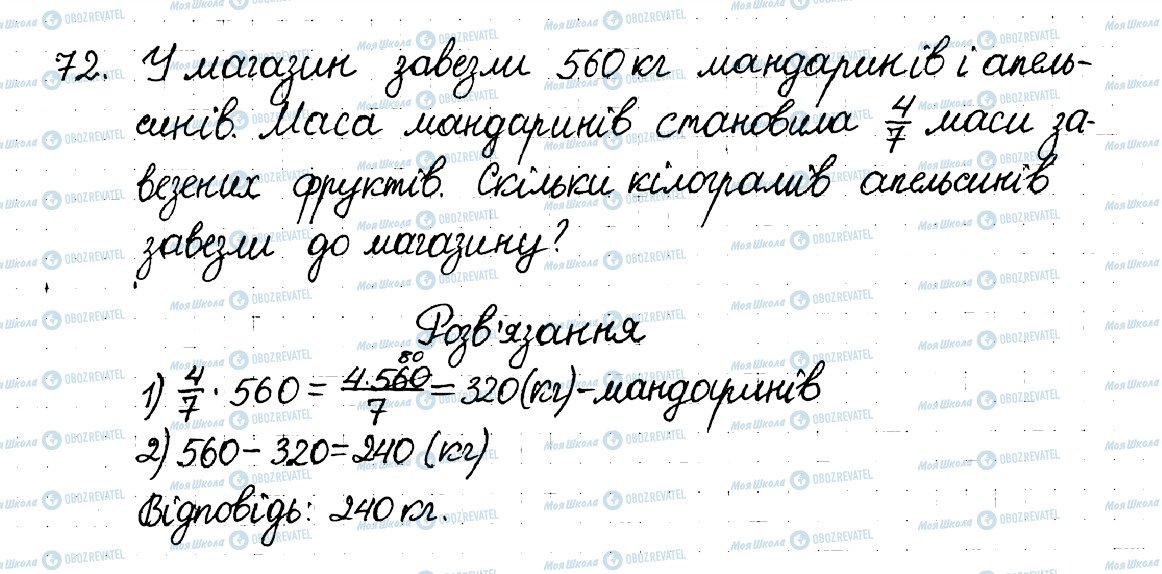 72. У магазин завезли 560 кг мандаринів і апель-
синів. Маса мандаринів становила 4/7 маси за-
везених фруктів. Скільки кілограмів апельсинів
завезли до магазину?
Розв'язання
1) 4/7 · 560 = 4·560/7 80 = 320 (кг) - мандаринів
2) 560 - 320 = 240 (кг)
Відповідь: 240 кг.
МояШкола OBOZREVATEL